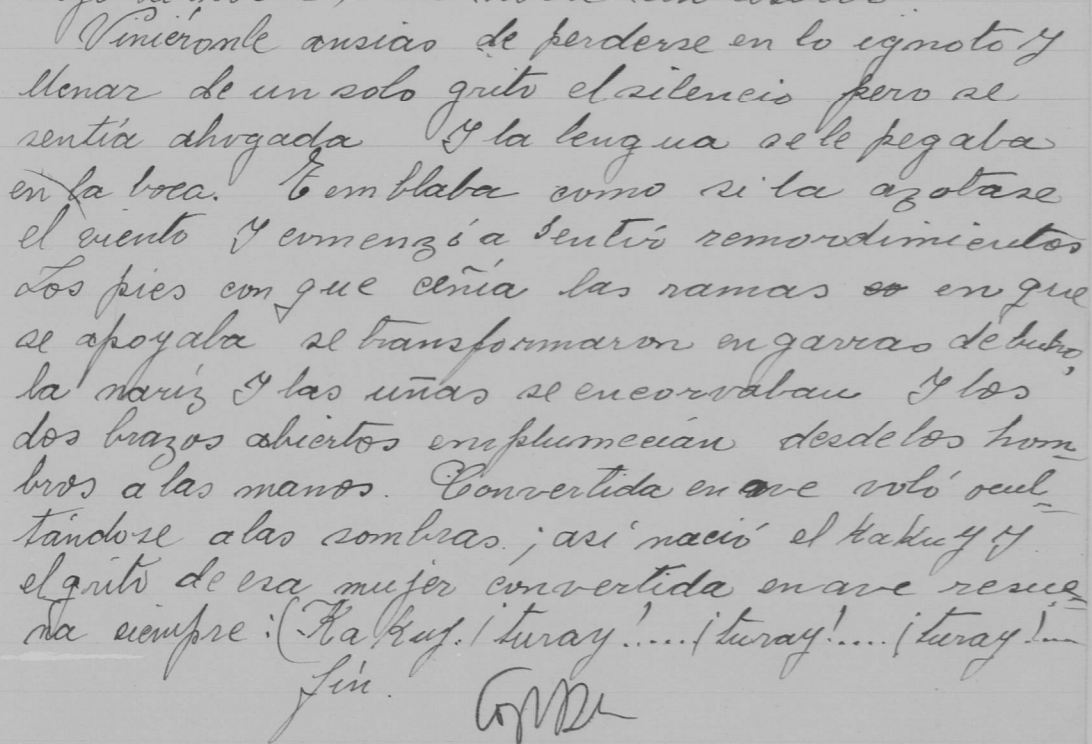 Viniéronle ansias de perderse en lo ignoto y
llenar de un solo grito el silencio pero se
sentía ahogada y la lengua se le pegaba
en la boca. Temblaba como si la azotase
el viento y comenzó a sentir remordimientos
Los pies con que ceñía las ramas en que
se apoyaba se transformaron en garras de buho,
la naríz y las uñas se encorvaban y los
dos brazos abiertos emplumecían desde los hom-
bros a las manos. Convertida en ave voló ocul-
tándose a las sombras; así nació el kakuy y
el grito de esa mujer convertida en ave resue-
na siempre: (Kakuy. ¡turay!....¡turay!....¡turay!...
fin.